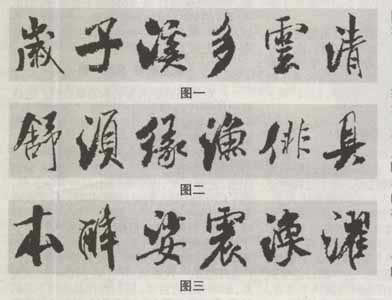 歲子溪多雲清
图一
舒須緣漁俳具
图二
本醉姿震濯
图三